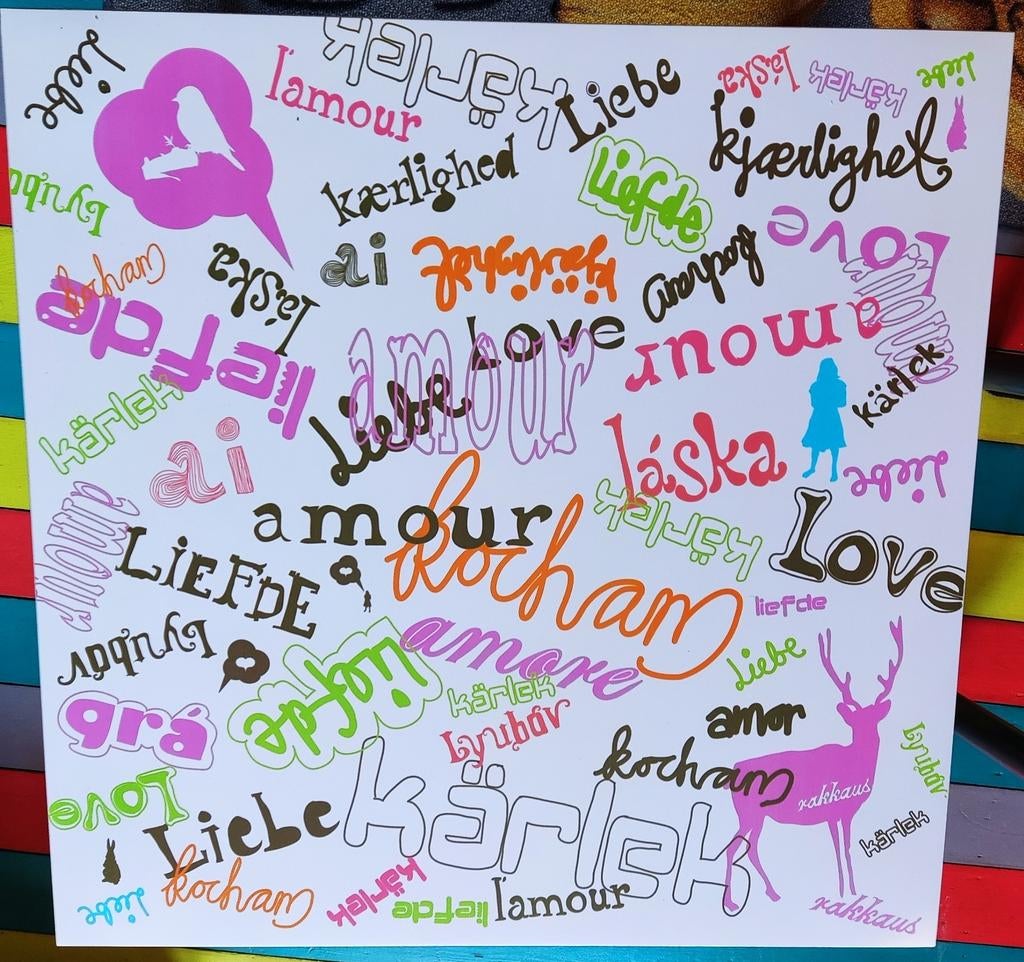 Liebe
l'amour
kärlek
Liebe
láska
kärlek
Liebe
kjærlighet
kærlighed
liefde
Lyubov
kocham
láska
ai
kjärlighet
kocham
Love
liefde
amour
Love
amour
amour
kärlek
kärlek
Liebe
ai
láska
Liebe
amour
amour
kocham
kärlek
Love
LiEFDE
liefde
Lyubov
amore
Liebe
liefde
kärlek
grá
Lyubov
amor
kocham
Lyubov
rakkaus
Love
Liebe
kärlek
kärlek
Liebe
kocham
kärlek
liefde
l'amour
rakkaus